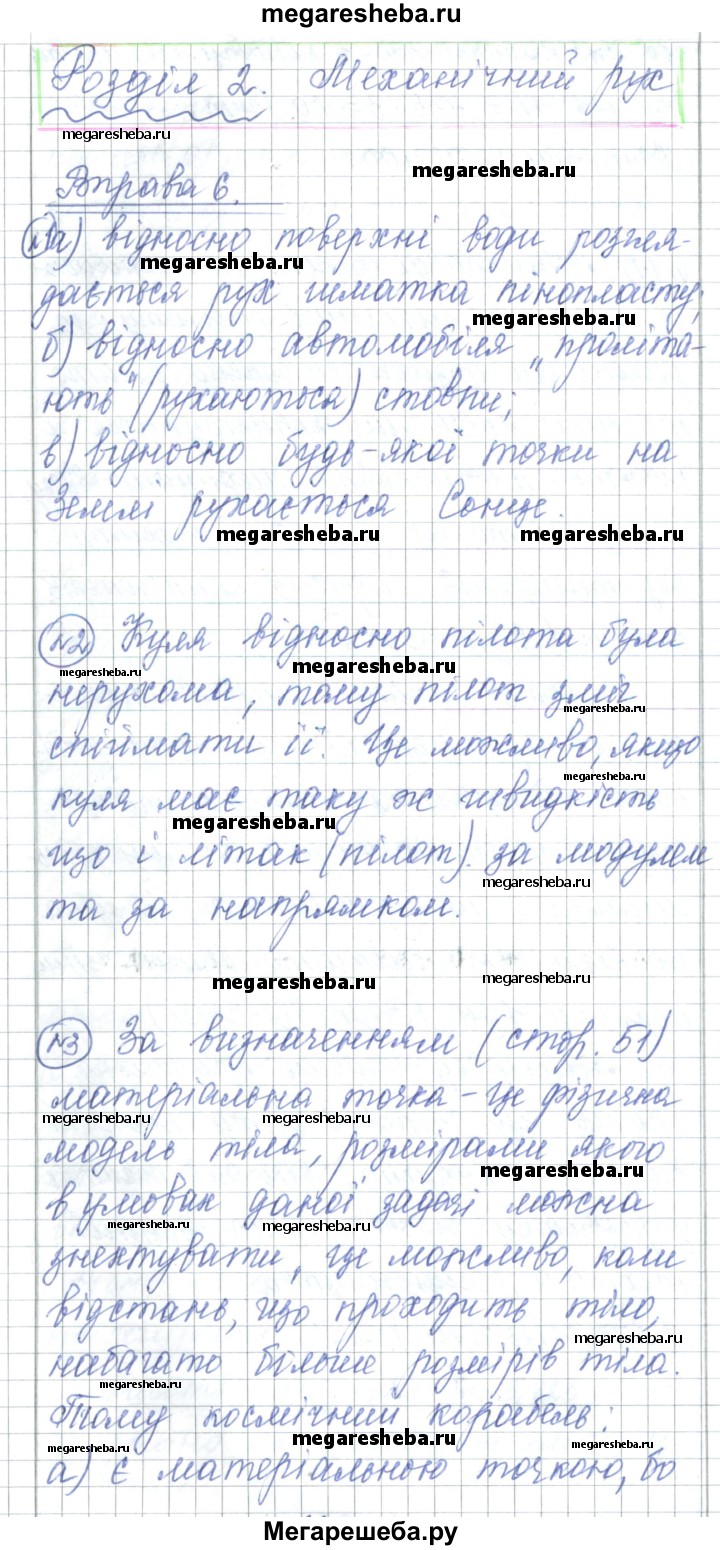 megaresheba.ru
Розділ 2. Механічний рух
megaresheba.ru
megaresheba.ru
Вправа 6.
№1 а) відносно поверхні води розгля-
megaresheba.ru
дається рух шматка пінопласту;
megaresheba.ru
б) відносно автомобіля "проліта-
ють" (рухаються) стовпи;
в) відносно будь-якої точки на
Землі рухається Сонце.
megaresheba.ru megaresheba.ru
№2 Куля відносно пілота була
megaresheba.ru megaresheba.ru
нерухома, тому пілот зміг
megaresheba.ru
спіймати її. Це можливо, якщо
megaresheba.ru
куля має таку ж швидкість
megaresheba.ru
що і літак (пілот) за модулем
megaresheba.ru
та за напрямком.
megaresheba.ru megaresheba.ru
№3 За визначенням (стор. 51)
матеріальна точка - це фізична
megaresheba.ru megaresheba.ru
модель тіла, розмірами якого
megaresheba.ru
в умовах даної задачі можна
megaresheba.ru megaresheba.ru
знехтувати, це можливо, коли
відстань, що проходить тіло,
megaresheba.ru
набагато більше розмірів тіла.
megaresheba.ru
Тому космічний корабель:
megaresheba.ru megaresheba.ru
megaresheba.ru
а) є матеріальною точкою, бо
Мегарешеба.ру